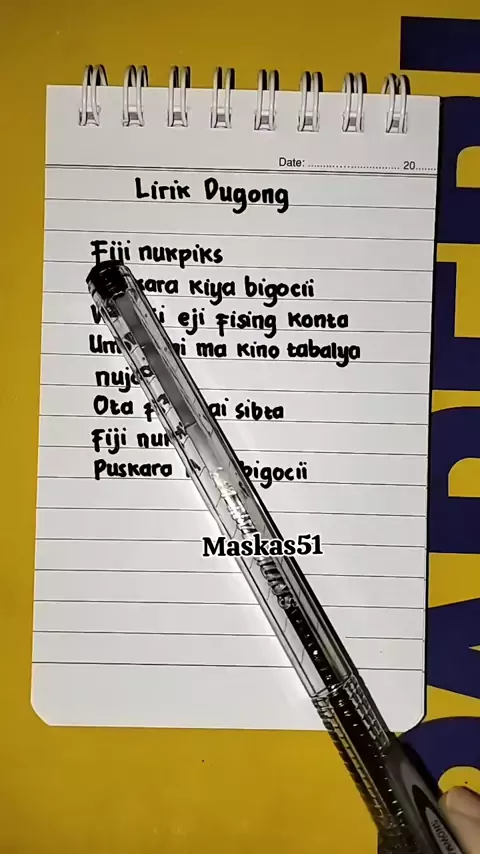 Date: ........................ 20.......
Lirik Dugong
Fiji nukpiks
kiya bigocii
eji fising konta
ma kino tabalya
Ota sibta
Fiji
Puskara bigocii
Maskas51